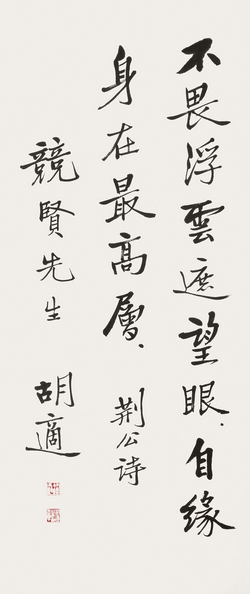 不畏浮雲遮望眼．自緣
身在最高層．荆公诗
競賢先生
胡適